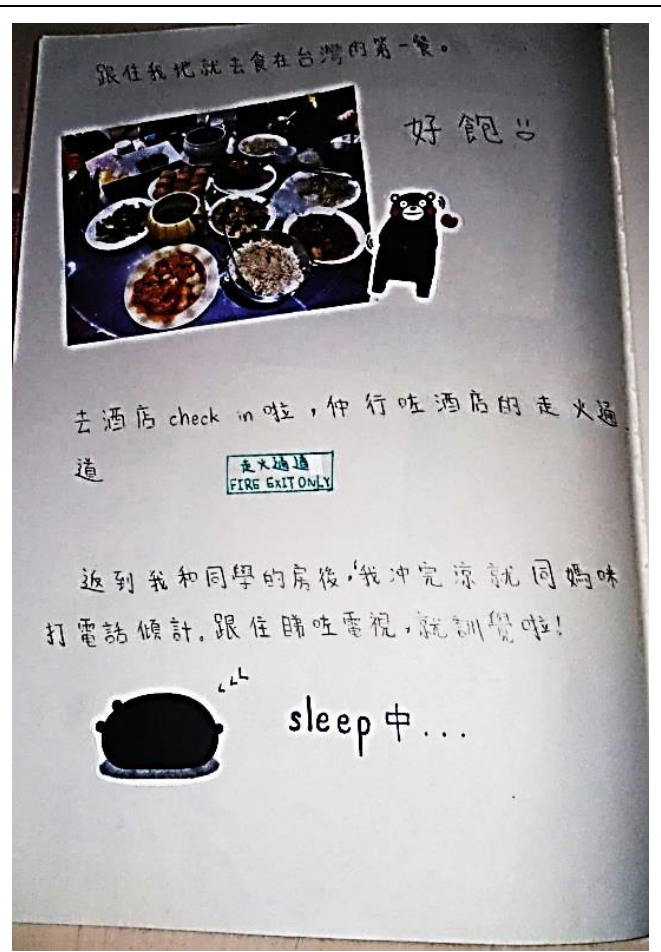 跟住我地就去食在台灣的第一餐。
好飽
去酒店 check in 啦，仲行咗酒店的走火通
道
走火通道
FIRE EXIT ONLY
返到我和同學的房後，我沖完涼就同媽咪
打電話傾計。跟住睇咗電視，就訓覺啦！
sleep 中...